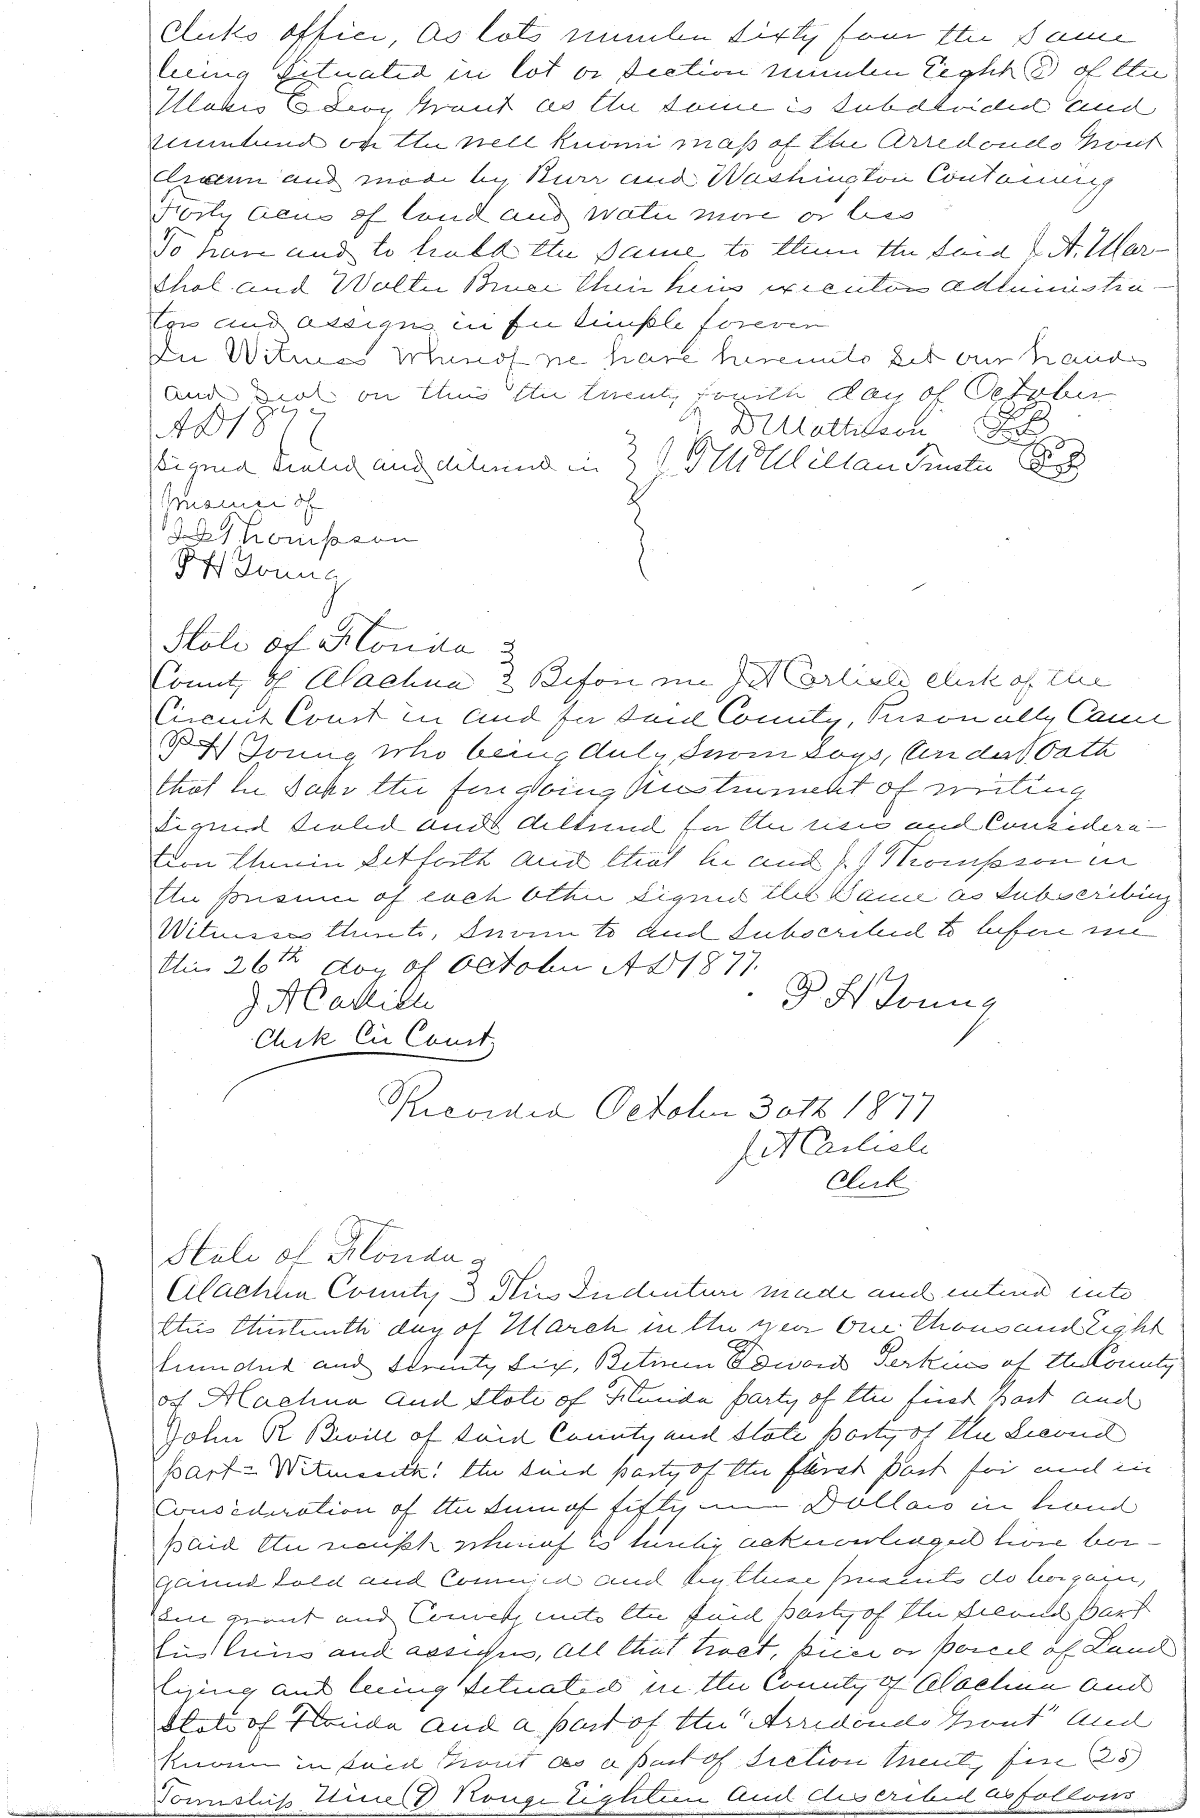 Clerks office, as lots number sixty four the same
being situated in lot or section number Eight (8) of the
Moses E Levy Grant as the same is subdivided and
numbered on the well known map of the Arredondo Grant
drawn and made by Burr and Washington Containing
Forty acres of land and water more or less
To have and to hold the same to them the said J A. Mar-
shal and Walter Bruce their heirs executors administra-
tors and assigns in fee simple forever
In Witness Whereof we have hereunto set our hands
and seal on this the twenty fourth day of October
AD 1877 D Matheson LS
Signed sealed and delivered in J T McMillan Trustee LS
presence of
J J Thompson
P H Young
State of Florida
County of Alachua Before me J A Carlisle clerk of the
Circuit Court in and for said County, Personally Came
P H Young who being duly sworn says, under Oath
that he saw the foregoing instrument of writing
signed sealed and delivered for the uses and Considera-
tion therein Set forth and that he and J J Thompson in
the presence of each other Signed the Same as Subscribing
Witnesses thereto, Sworn to and Subscribed to before me
this 26th day of October AD 1877.
J A Carlisle P H Young
Clerk Cir Court
Recorded October 30th 1877
J A Carlisle
Clerk
State of Florida
Alachua County This Indenture made and entered into
this thirteenth day of March in the year One thousand Eight
hundred and seventy six, Between Edward Perkins of the County
of Alachua and State of Florida party of the first part and
John R Bevill of said County and state party of the Second
part = Witnesseth: the said party of the first part for and in
Consideration of the Sum of fifty — Dollars in hand
paid the receipt whereof is hereby acknowledged have bar-
gained sold and Conveyed and by these presents do bargain,
sell grant and Convey unto the said party of the second part
his heirs and assigns, all that tract, piece or parcel of Land
lying and being Situated in the County of Alachua and
State of Florida and a part of the "Arredondo Grant" and
known in said Grant as a part of Section twenty five (25)
Township Nine (9) Range Eighteen and described as follows